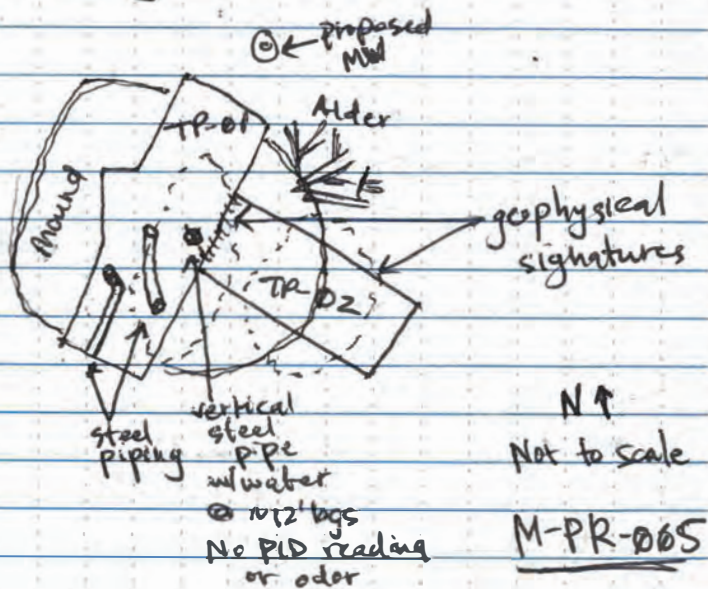 proposed
MW
TP-01
Alder
Mound
geophysical
signatures
TP-02
steel
piping
vertical
steel
pipe
w/water
@ ~12' bgs
No PID reading
or odor
N ↑
Not to scale
M-PR-005